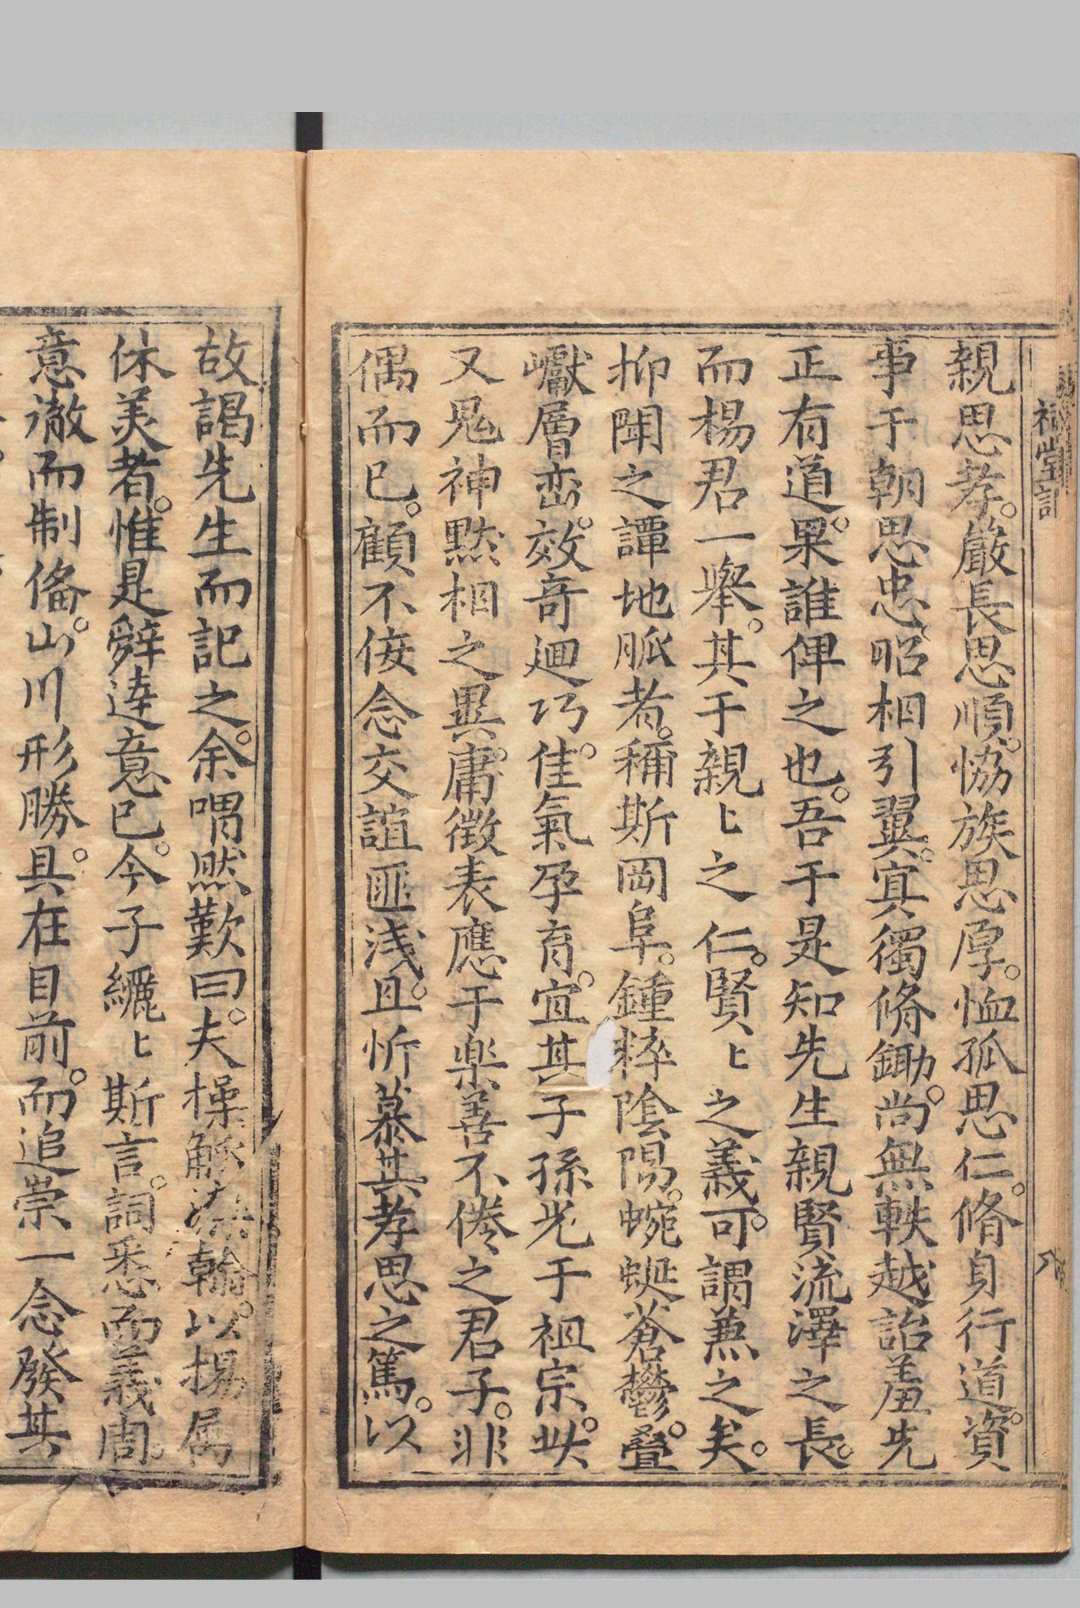 福堂記
親思孝。嚴長思順。恊族思厚。恤孤思仁。脩身行道。資
事于朝思忠。昭相引翼。寘獨脩鋤。尚無軼越詒羞先
正有道。果誰俾之也。吾于是知先生親賢流澤之長。
而楊君一舉。其于親〻之仁。賢〻之義。可謂兼之矣。
抑聞之譚地脈者。稱斯岡阜。鍾粹陰陽。蜿蜒蒼鬱。疊
巘層巒。效奇廻巧。佳氣孕育。宜其子孫光于祖宗。此
又鬼神黙相之異。庸徵表應于樂善不倦之君子。非
偶而已。顧不佞念交誼匪淺。且忻慕其孝思之篤。以
故謁先生而記之。余喟然歎曰。夫操觚染翰。以揚厲
休美者。惟是辤達意已。今子纚〻斯言。詞悉而義周。
意徹而制俻。山川形勝。具在目前。而追崇一念發其